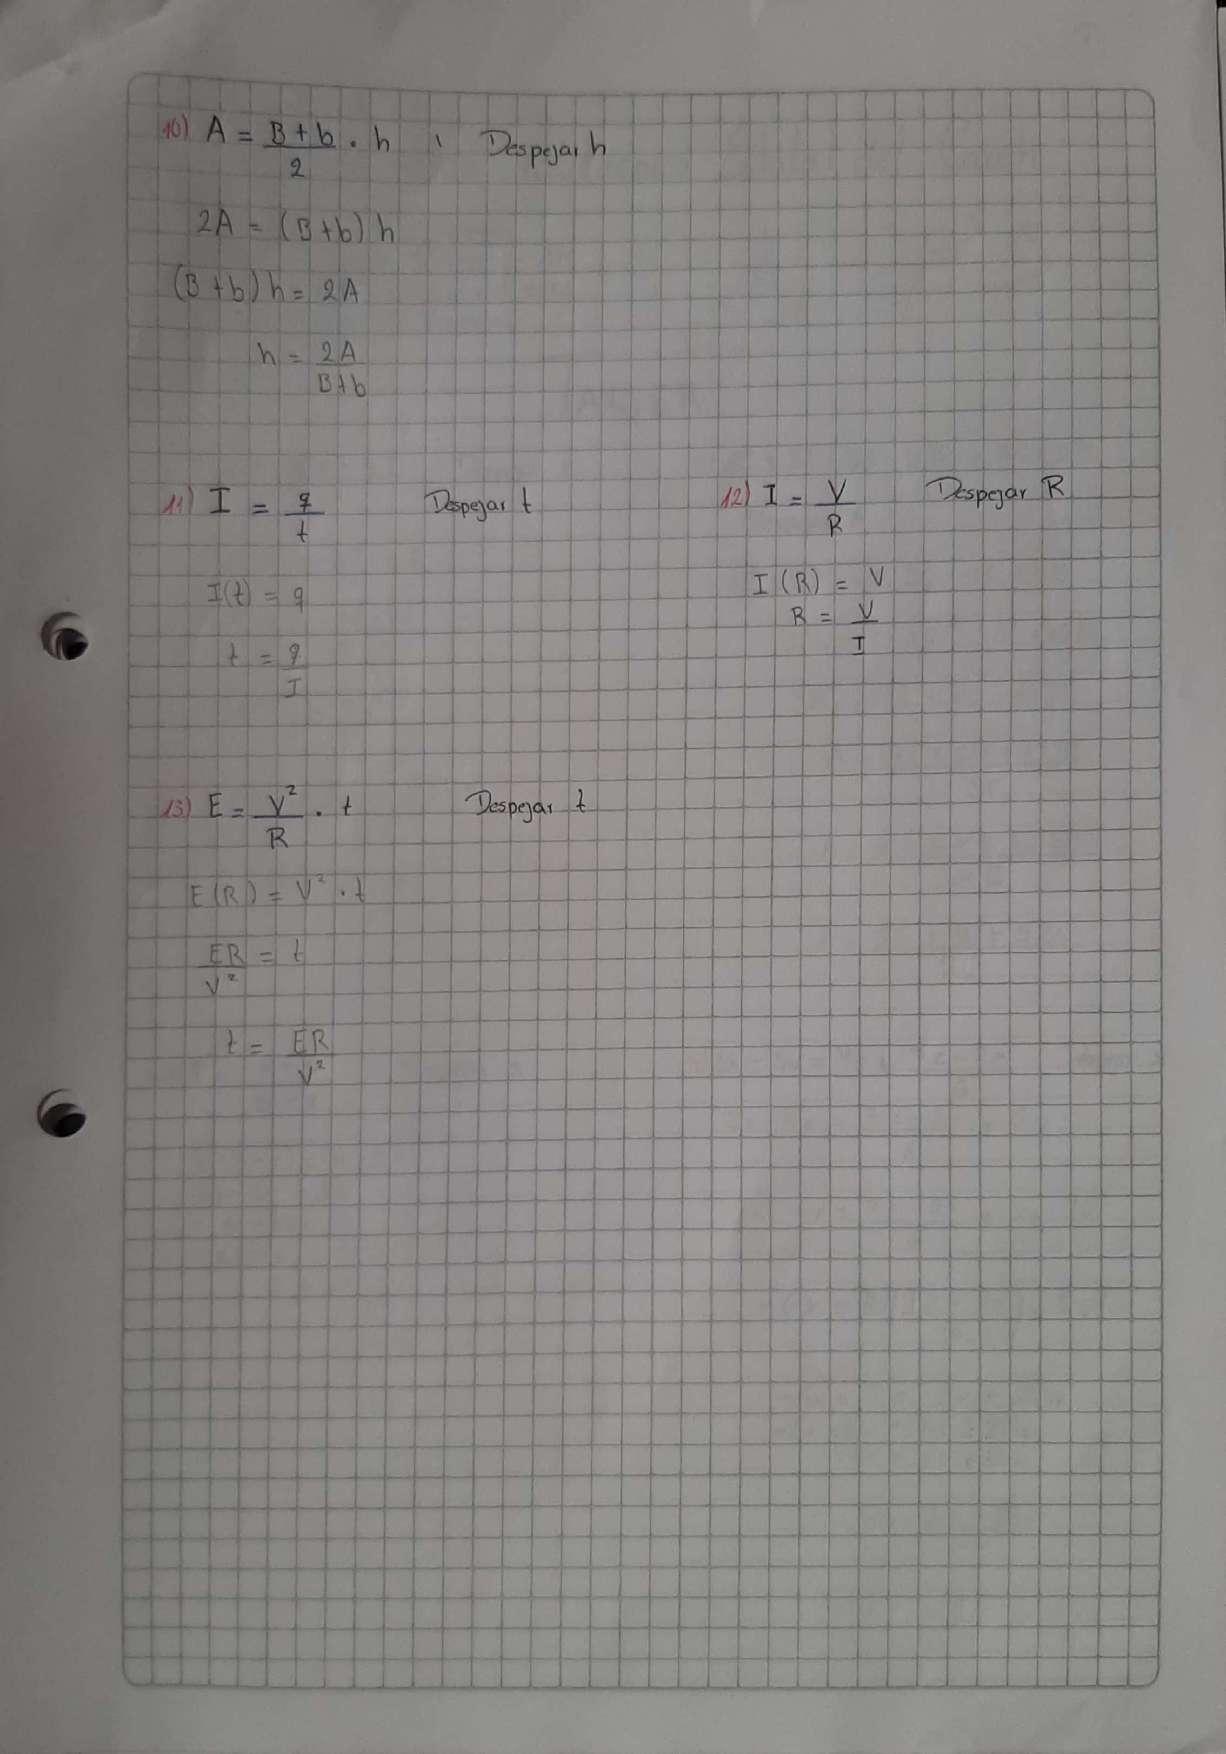 10) A = B + b / 2 · h , Despejar h
2A = (B+b) h
(B+b) h = 2A
h = 2A / B+b
11) I = q / t Despejar t
I(t) = q
t = q / I
12) I = V / R Despejar R
I (R) = V
R = V / I
13) E = V² / R · t Despejar t
E(R) = V² · t
ER / V² = t
t = ER / V²